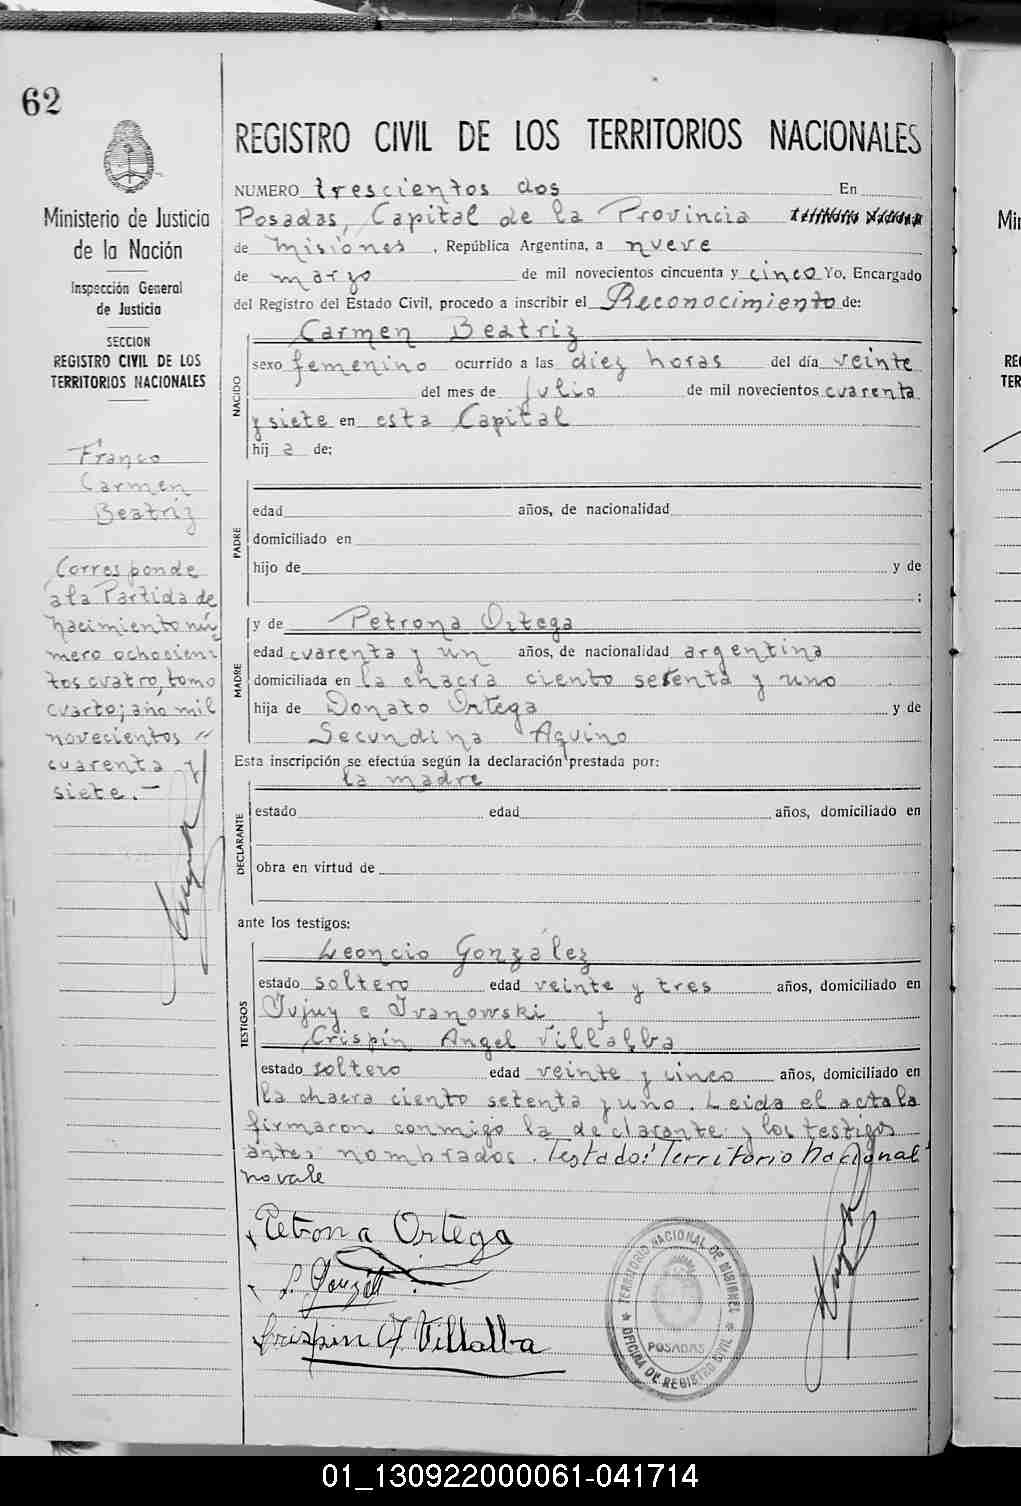 62
REGISTRO CIVIL DE LOS TERRITORIOS NACIONALES
Ministerio de Justicia
de la Nación
Inspección General
de Justicia
SECCION
REGISTRO CIVIL DE LOS
TERRITORIOS NACIONALES
Franco
Carmen
Beatriz
Corresponde
a la Partida de
nacimiento nú
mero ochocien
tos cuatro, tomo
cuarto; año mil
novecientos "
cuarenta y
siete.-
NUMERO trescientos dos En
Posadas, Capital de la Provincia Territorio Nacional
de Misiones, República Argentina, a nueve
de marzo de mil novecientos cincuenta y cinco Yo, Encargado
del Registro del Estado Civil, procedo a inscribir el Reconocimiento de:
NACIDO
Carmen Beatriz
sexo femenino ocurrido a las diez horas del día veinte
del mes de julio de mil novecientos cuarenta
y siete en esta Capital
hij a de:
PADRE
edad años, de nacionalidad
domiciliado en
hijo de y de
;
MADRE
y de Petrona Ortega
edad cuarenta y un años, de nacionalidad argentina
domiciliada en la chacra ciento setenta y uno
hija de Donato Ortega y de
Secundina Aquino
Esta inscripción se efectúa según la declaración prestada por:
la madre
DECLARANTE
estado edad años, domiciliado en
obra en virtud de
ante los testigos:
TESTIGOS
Leoncio González
estado soltero edad veinte y tres años, domiciliado en
Jujuy e Ivanowski y
Crispín Angel Villalba
estado soltero edad veinte y cinco años, domiciliado en
la chacra ciento setenta y uno. Leida el acta la
firmaron conmigo la declarante y los testigos
antes nombrados. Testado: "Territorio Nacional"
no vale
Petrona Ortega
L. Gonzál
Crispin A. Villalba
TERRITORIO NACIONAL DE MISIONES
POSADAS
OFICINA DE REGISTRO CIVIL
Mi
RE
TER
01_130922000061-041714